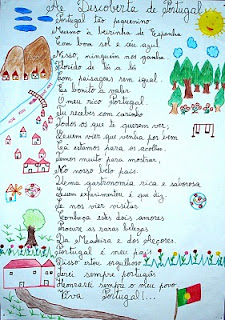 À Descoberta de Portugal
Portugal tão pequenino
Mesmo à beirinha de Espanha
Com bom sol e céu azul
Nisso, ninguém nos ganha
Florido de lá a lá
Com paisagens sem igual.
És bonito a valer
O meu rico Portugal.
Ou receber com carinho
Todos os que te querem ver,
Quem vier que venha por bem
Cá estamos para os acolher.
Temos muito para mostrar,
No nosso belo país:
Uma gastronomia rica e saborosa
Quem experimentar é que diz
Se nos vier visitar
Conheça estes dois amores
Procure as raras belezas
Da Madeira e dos Açores.
Portugal é meu país
Disso estou orgulhoso
Serei sempre português
Honrarei sempre o meu povo
Viva Portugal!...